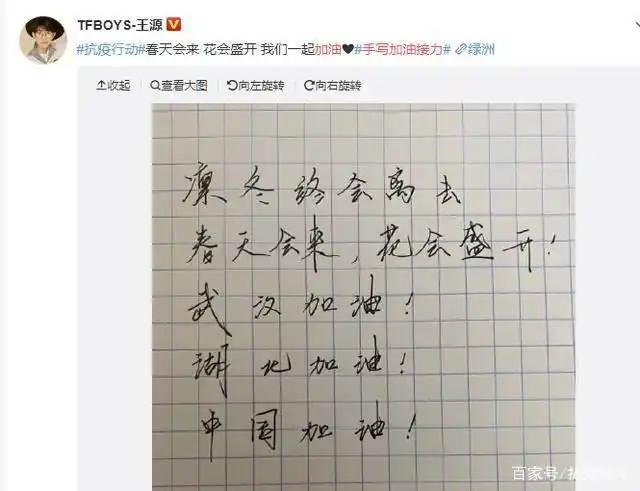 TFBOYS-王源
#抗疫行动#春天会来 花会盛开 我们一起加油#手写加油接力# 绿洲
收起 查看大图 向左旋转 向右旋转
凛冬终会离去
春天会来，花会盛开！
武汉加油！
湖北加油！
中国加油！
百家号/